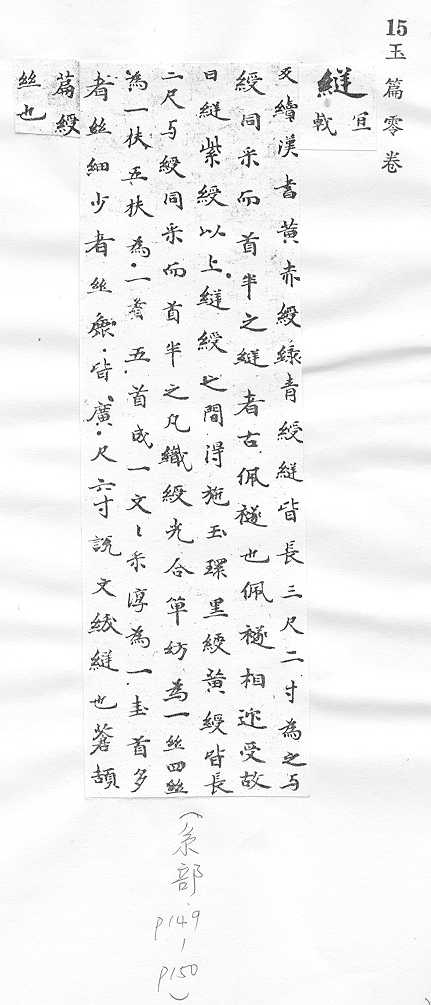 15玉篇零卷
縌宜戟
反續漢書黄赤綬緑青綬縌皆長三尺二寸為之与
綬同采而首半之縌者古佩襚也佩襚相迎受故
曰縌紫綬以上縌綬之間得施玉環黑綬黄綬皆長
二尺与綬同采而首半之凡織綬先合單紡為一絲四絲
為一扶五扶為一首五首成一文〻采淳為一圭首多
者絲細少者絲麁皆廣尺六寸說文綬縌也蒼頡
篇綬
絲也
(糸部.p149-p150)